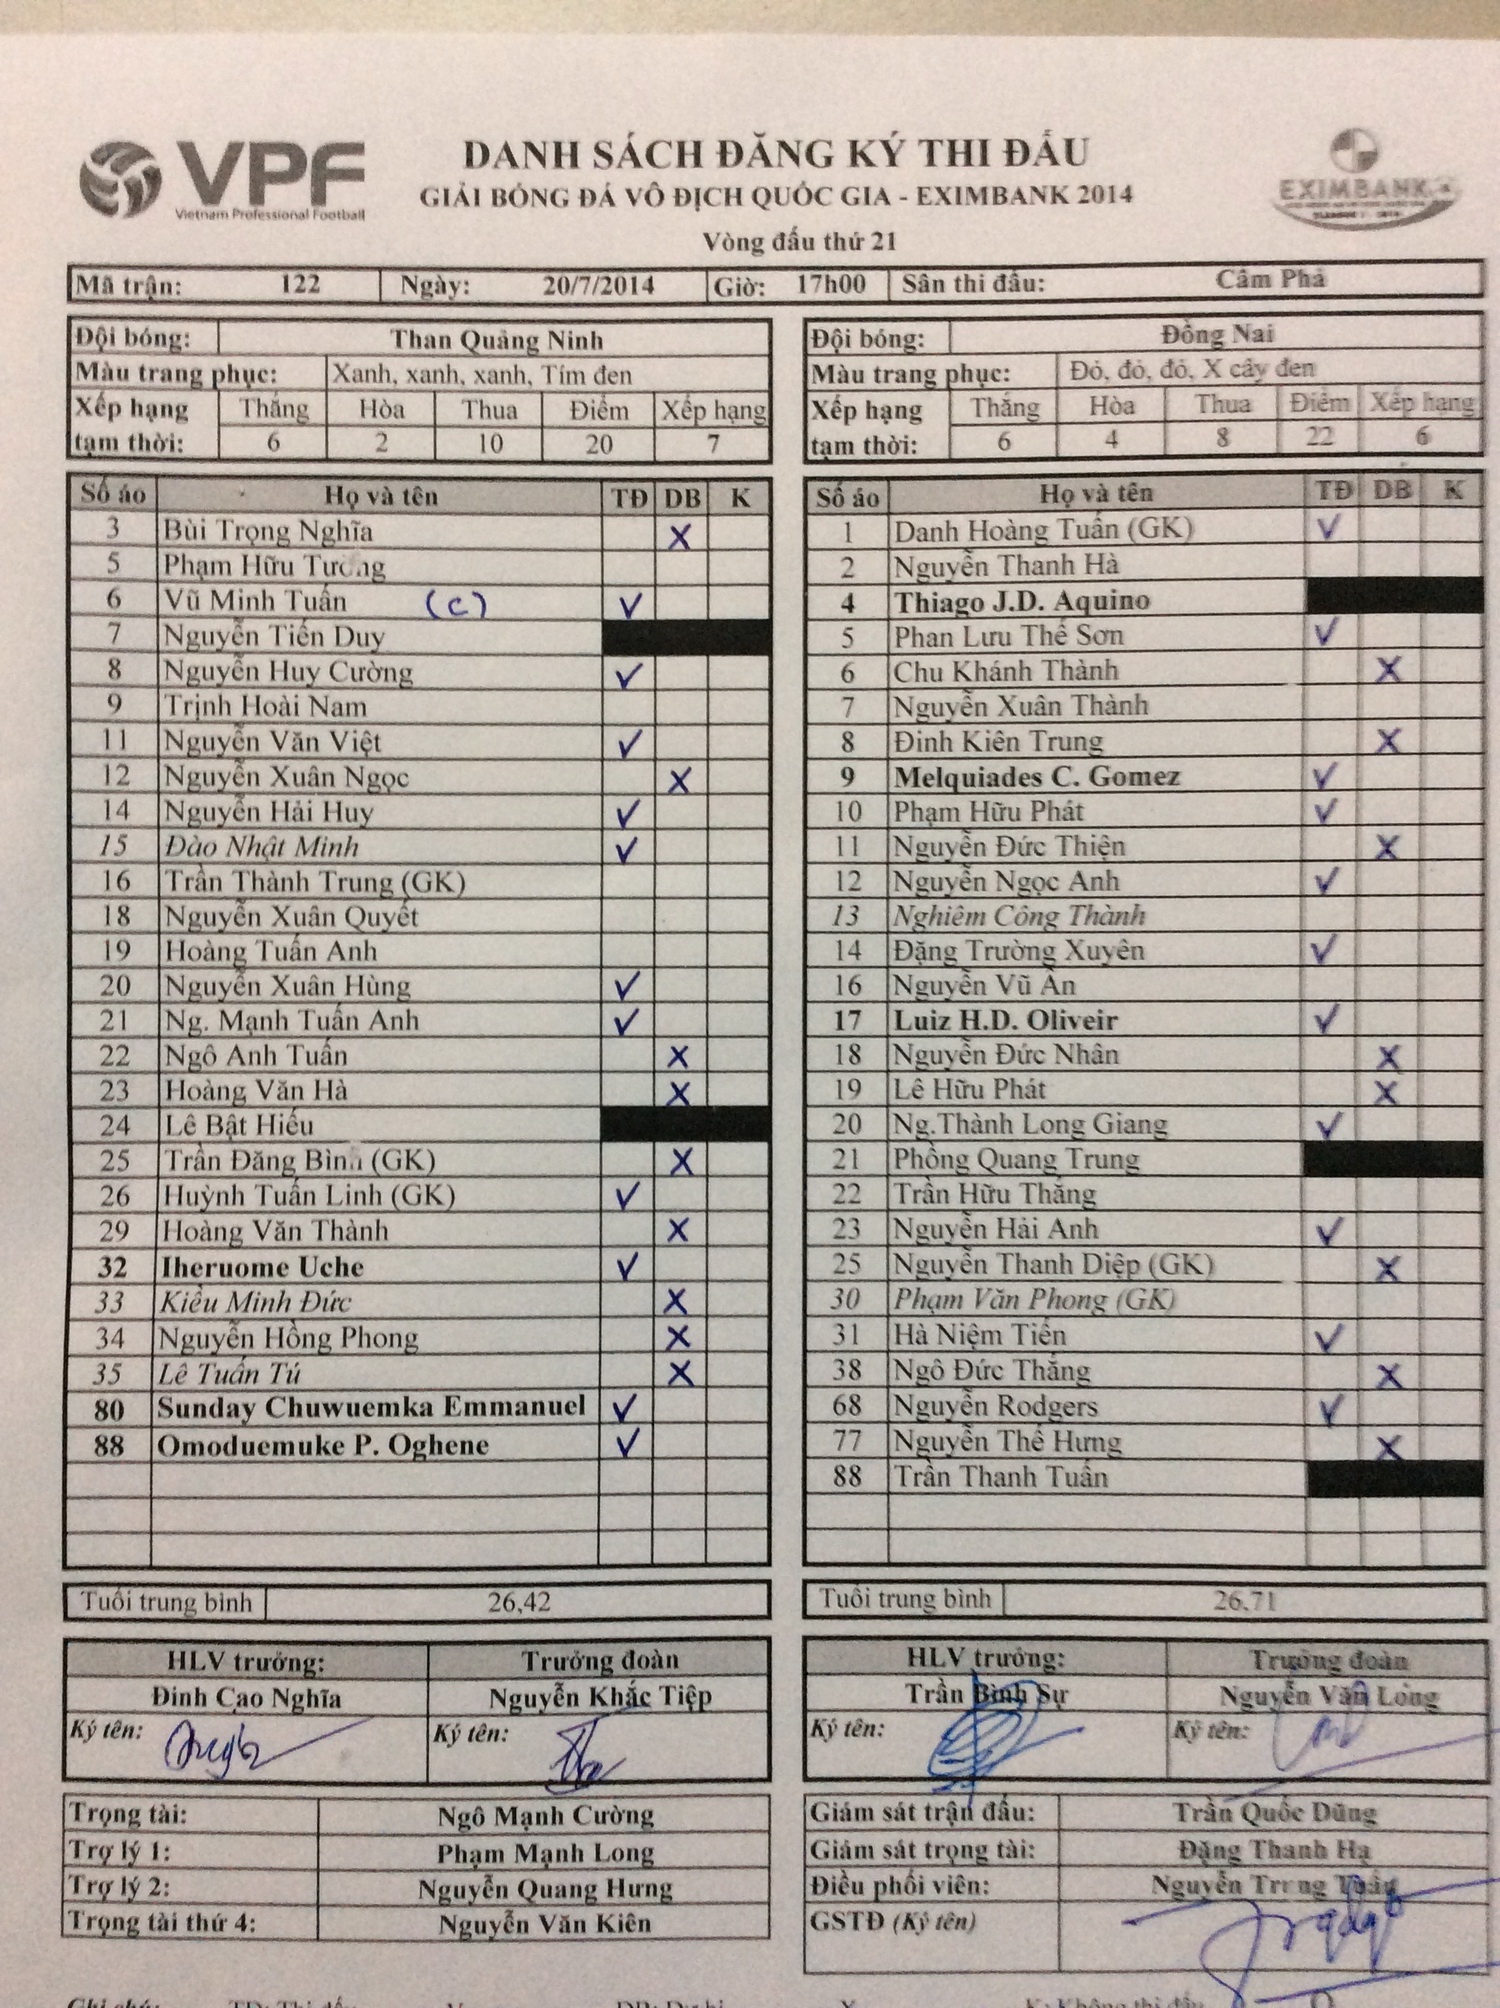 VPF
Vietnam Professional Football
DANH SÁCH ĐĂNG KÝ THI ĐẤU
GIẢI BÓNG ĐÁ VÔ ĐỊCH QUỐC GIA - EXIMBANK 2014
EXIMBANK
Vòng đấu thứ 21
Mã trận: 122 Ngày: 20/7/2014 Giờ: 17h00 Sân thi đấu: Cẩm Phả
Đội bóng: Than Quảng Ninh
Màu trang phục: Xanh, xanh, xanh, Tím đen
Xếp hạng Thắng Hòa Thua Điểm Xếp hạng
tạm thời: 6 2 10 20 7
Số áo Họ và tên TĐ DB K
3 Bùi Trọng Nghĩa X
5 Phạm Hữu
6 Vũ Minh Tuấn (C) V
7 Nguyễn Tiến Duy
8 Nguyễn Huy Cường V
9 Trịnh Hoài Nam
11 Nguyễn Văn Việt V
12 Nguyễn Xuân Ngọc X
14 Nguyễn Hải Huy V
15 Đào Nhật Minh V
16 Trần Thành Trung (GK)
18 Nguyễn Xuân Quyết
19 Hoàng Tuấn Anh
20 Nguyễn Xuân Hùng V
21 Ng. Mạnh Tuấn Anh V
22 Ngô Anh Tuấn X
23 Hoàng Văn Hà X
24 Lê Bật Hiếu
25 Trần Đăng Bình (GK) X
26 Huỳnh Tuấn Linh (GK) V
29 Hoàng Văn Thành X
32 Iheruome Uche V
33 Kiều Minh Đức X
34 Nguyễn Hồng Phong X
35 Lê Tuấn Tú X
80 Sunday Chuwuemka Emmanuel V
88 Omoduemuke P. Oghene V
Tuổi trung bình 26,42
HLV trưởng: Trưởng đoàn
Đinh Cao Nghĩa Nguyễn Khắc Tiệp
Ký tên: Ký tên:
Trọng tài: Ngô Mạnh Cường
Trợ lý 1: Phạm Mạnh Long
Trợ lý 2: Nguyễn Quang Hưng
Trọng tài thứ 4: Nguyễn Văn Kiên
Đội bóng: Đồng Nai
Màu trang phục: Đỏ, đỏ, đỏ, X cây đen
Xếp hạng Thắng Hòa Thua Điểm Xếp hạng
tạm thời: 6 4 8 22 6
Số áo Họ và tên TĐ DB K
1 Danh Hoàng Tuấn (GK) V
2 Nguyễn Thanh Hà
4 Thiago J.D. Aquino
5 Phan Lưu Thế Sơn V
6 Chu Khánh Thành X
7 Nguyễn Xuân Thành
8 Đinh Kiên Trung X
9 Melquiades C. Gomez V
10 Phạm Hữu Phát V
11 Nguyễn Đức Thiện X
12 Nguyễn Ngọc Anh V
13 Nghiêm Công Thành
14 Đặng Trường Xuyên V
16 Nguyễn Vũ Ân
17 Luiz H.D. Oliveir V
18 Nguyễn Đức Nhân X
19 Lê Hữu Phát X
20 Ng.Thành Long Giang V
21 Phồng Quang Trung
22 Trần Hữu Thắng
23 Nguyễn Hải Anh V
25 Nguyễn Thanh Diệp (GK) X
30 Phạm Văn Phong (GK)
31 Hà Niệm Tiến V
38 Ngô Đức Thắng X
68 Nguyễn Rodgers V
77 Nguyễn Thế Hưng X
88 Trần Thanh Tuấn
Tuổi trung bình 26,71
HLV trưởng: Trưởng đoàn
Trần Bình Sự Nguyễn Văn Long
Ký tên: Ký tên:
Giám sát trận đấu: Trần Quốc Dũng
Giám sát trọng tài: Đặng Thanh Hạ
Điều phối viên: Nguyễn Trung
GSTĐ (Ký tên)
Ghi chú: TĐ: Thi đấu V DB: Dự bị X K: Không thi đấu